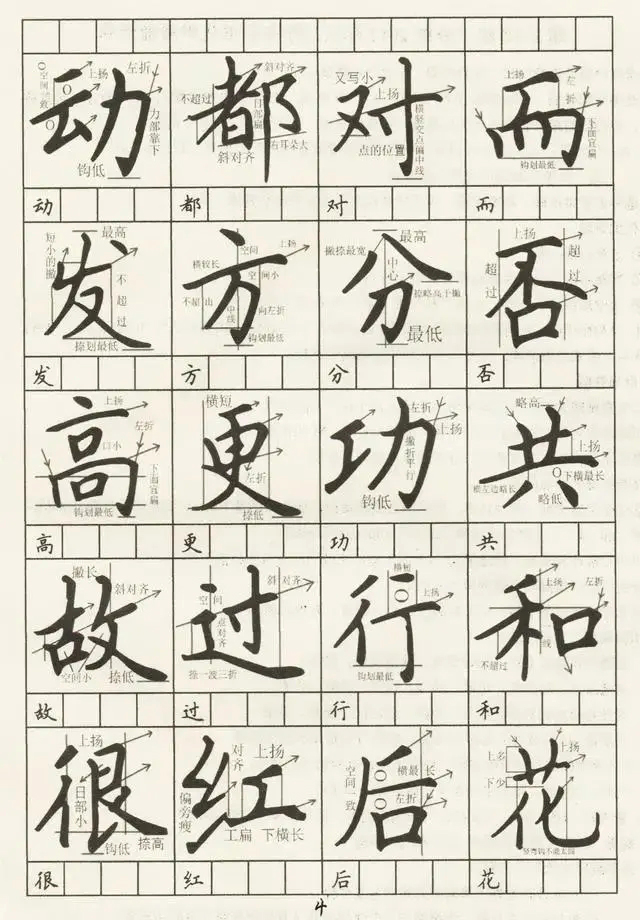 动 都 对 而
空间一致 上扬 左折 力部靠下 钩低
不超过 斜对齐 日部扁 斜对齐 右耳朵大
又写小 上扬 横竖交点偏中线 点的位置
上扬 左折 下面宜扁 钩划最低
动 都 对 而
发 方 分 否
短小的撇 最高 不超过 捺划最低
横较长 空间 上扬 空间小 不超出 中线 向左折 钩划最低
最高 撇捺最宽 中心 捺略高于撇 最低
上扬 超过 超过
发 方 分 否
高 更 功 共
上扬 左折 口小 下面宜扁 钩划最低
横短 左折 捺低
左折 上扬 撇折平行 钩低
略高 上扬 下横最长 横左边略长 略低
高 更 功 共
故 过 行 和
撇长 斜对齐 空间小 捺低
斜对齐 空间 点对齐 捺一波三折
横短 上扬 钩划最低
上扬 左折 不超过 线
故 过 行 和
很 红 后 花
上扬 日部小 钩低 捺高
对齐 上扬 偏旁瘦 工扁 下横长
空间一致 横最长 左折
上多 下少 上扬 竖弯钩不能太圆
很 红 后 花
4